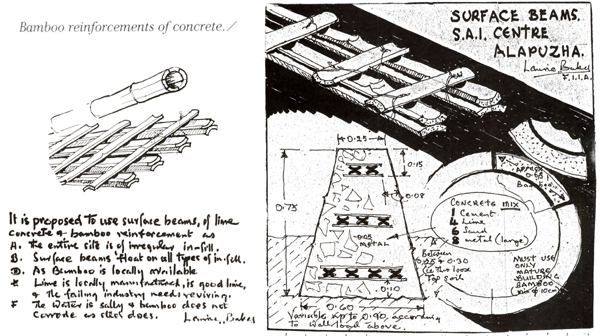 Bamboo reinforcements of concrete./
It is proposed to use surface beams, of lime
concrete & bamboo reinforcement as
A. the entire site is of irregular in-fill.
B. Surface beams float on all types of in-fill.
D. As Bamboo is locally available
E Lime is locally manufactured, is good lime,
& the failing industry needs reviving.
F The Water is salty & bamboo does not
corrode as steel does.
Laurie Baker
SURFACE BEAMS.
S.A.I. CENTRE
ALAPUZHA.
Laurie Baker
F.I.I.A.
0.25
0.15
0.08
0.75
0.05
METAL
0.10
0.60
Variable up to 0.90, according
to Wall load above.
Between
0.25 & 0.30
loose
Top soil
APPROX
Bamboo
CONCRETE MIX
1 Cement
4 Lime
6 Sand
8 metal (large)
MUST USE
ONLY
MATURE
BUILDING
BAMBOO